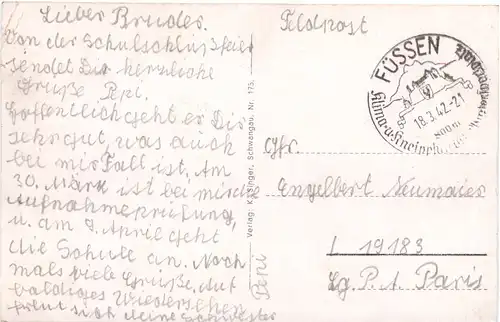 Lieber Bruder.
Von der Schulschlußfeier
sendet Dir herzliche
Grüße Pepi.
Hoffentlich geht er Dir
sehr gut, was auch
bei mir Fall ist. Am
30. März ist bei mir die
Aufnahmeprüfung,
u. am 9. April geht
die Schule an. Noch
mals viele Grüße. Auf
baldiges Wiedersehen
freut sich deine Schwester
Pepi
Verlag K. Singer, Schwangau, Nr. 175.
Feldpost
FÜSSEN
18.3.42-21
800 m
Klima-u. Kneipp
Gfr.
Engelbert Neumaier
L 19183
Lg. P. A. Paris